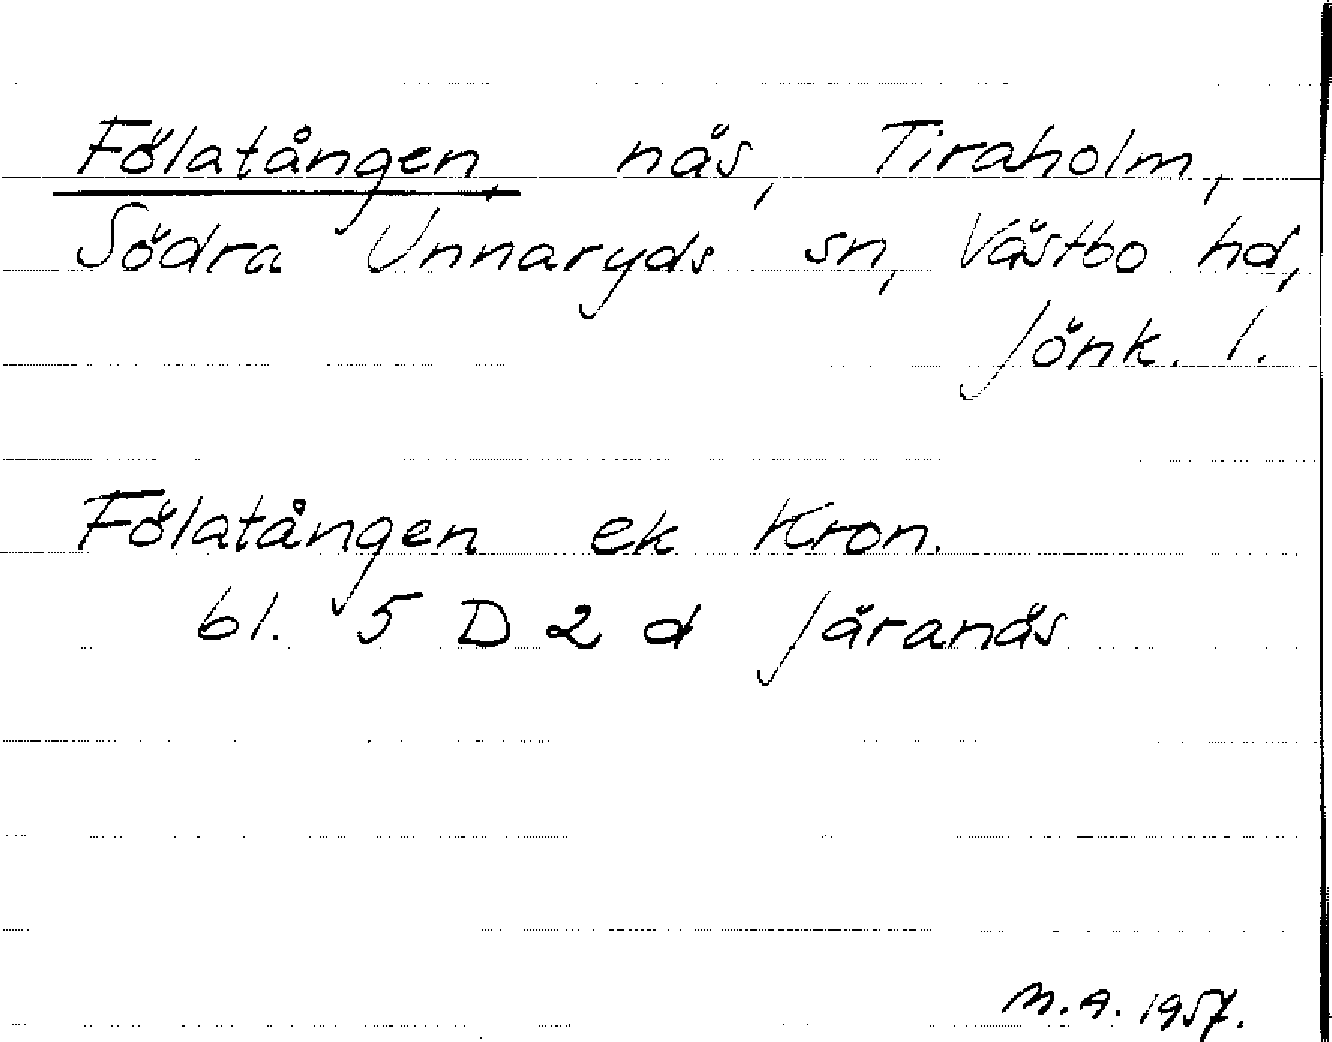 Fölatången, näs, Tiraholm,
Södra Unnaryds sn, Västbo hd,
Jönk. l.
Fölatången ek Kron.
bl. 5 D 2 d Järanäs
M.A. 1957.